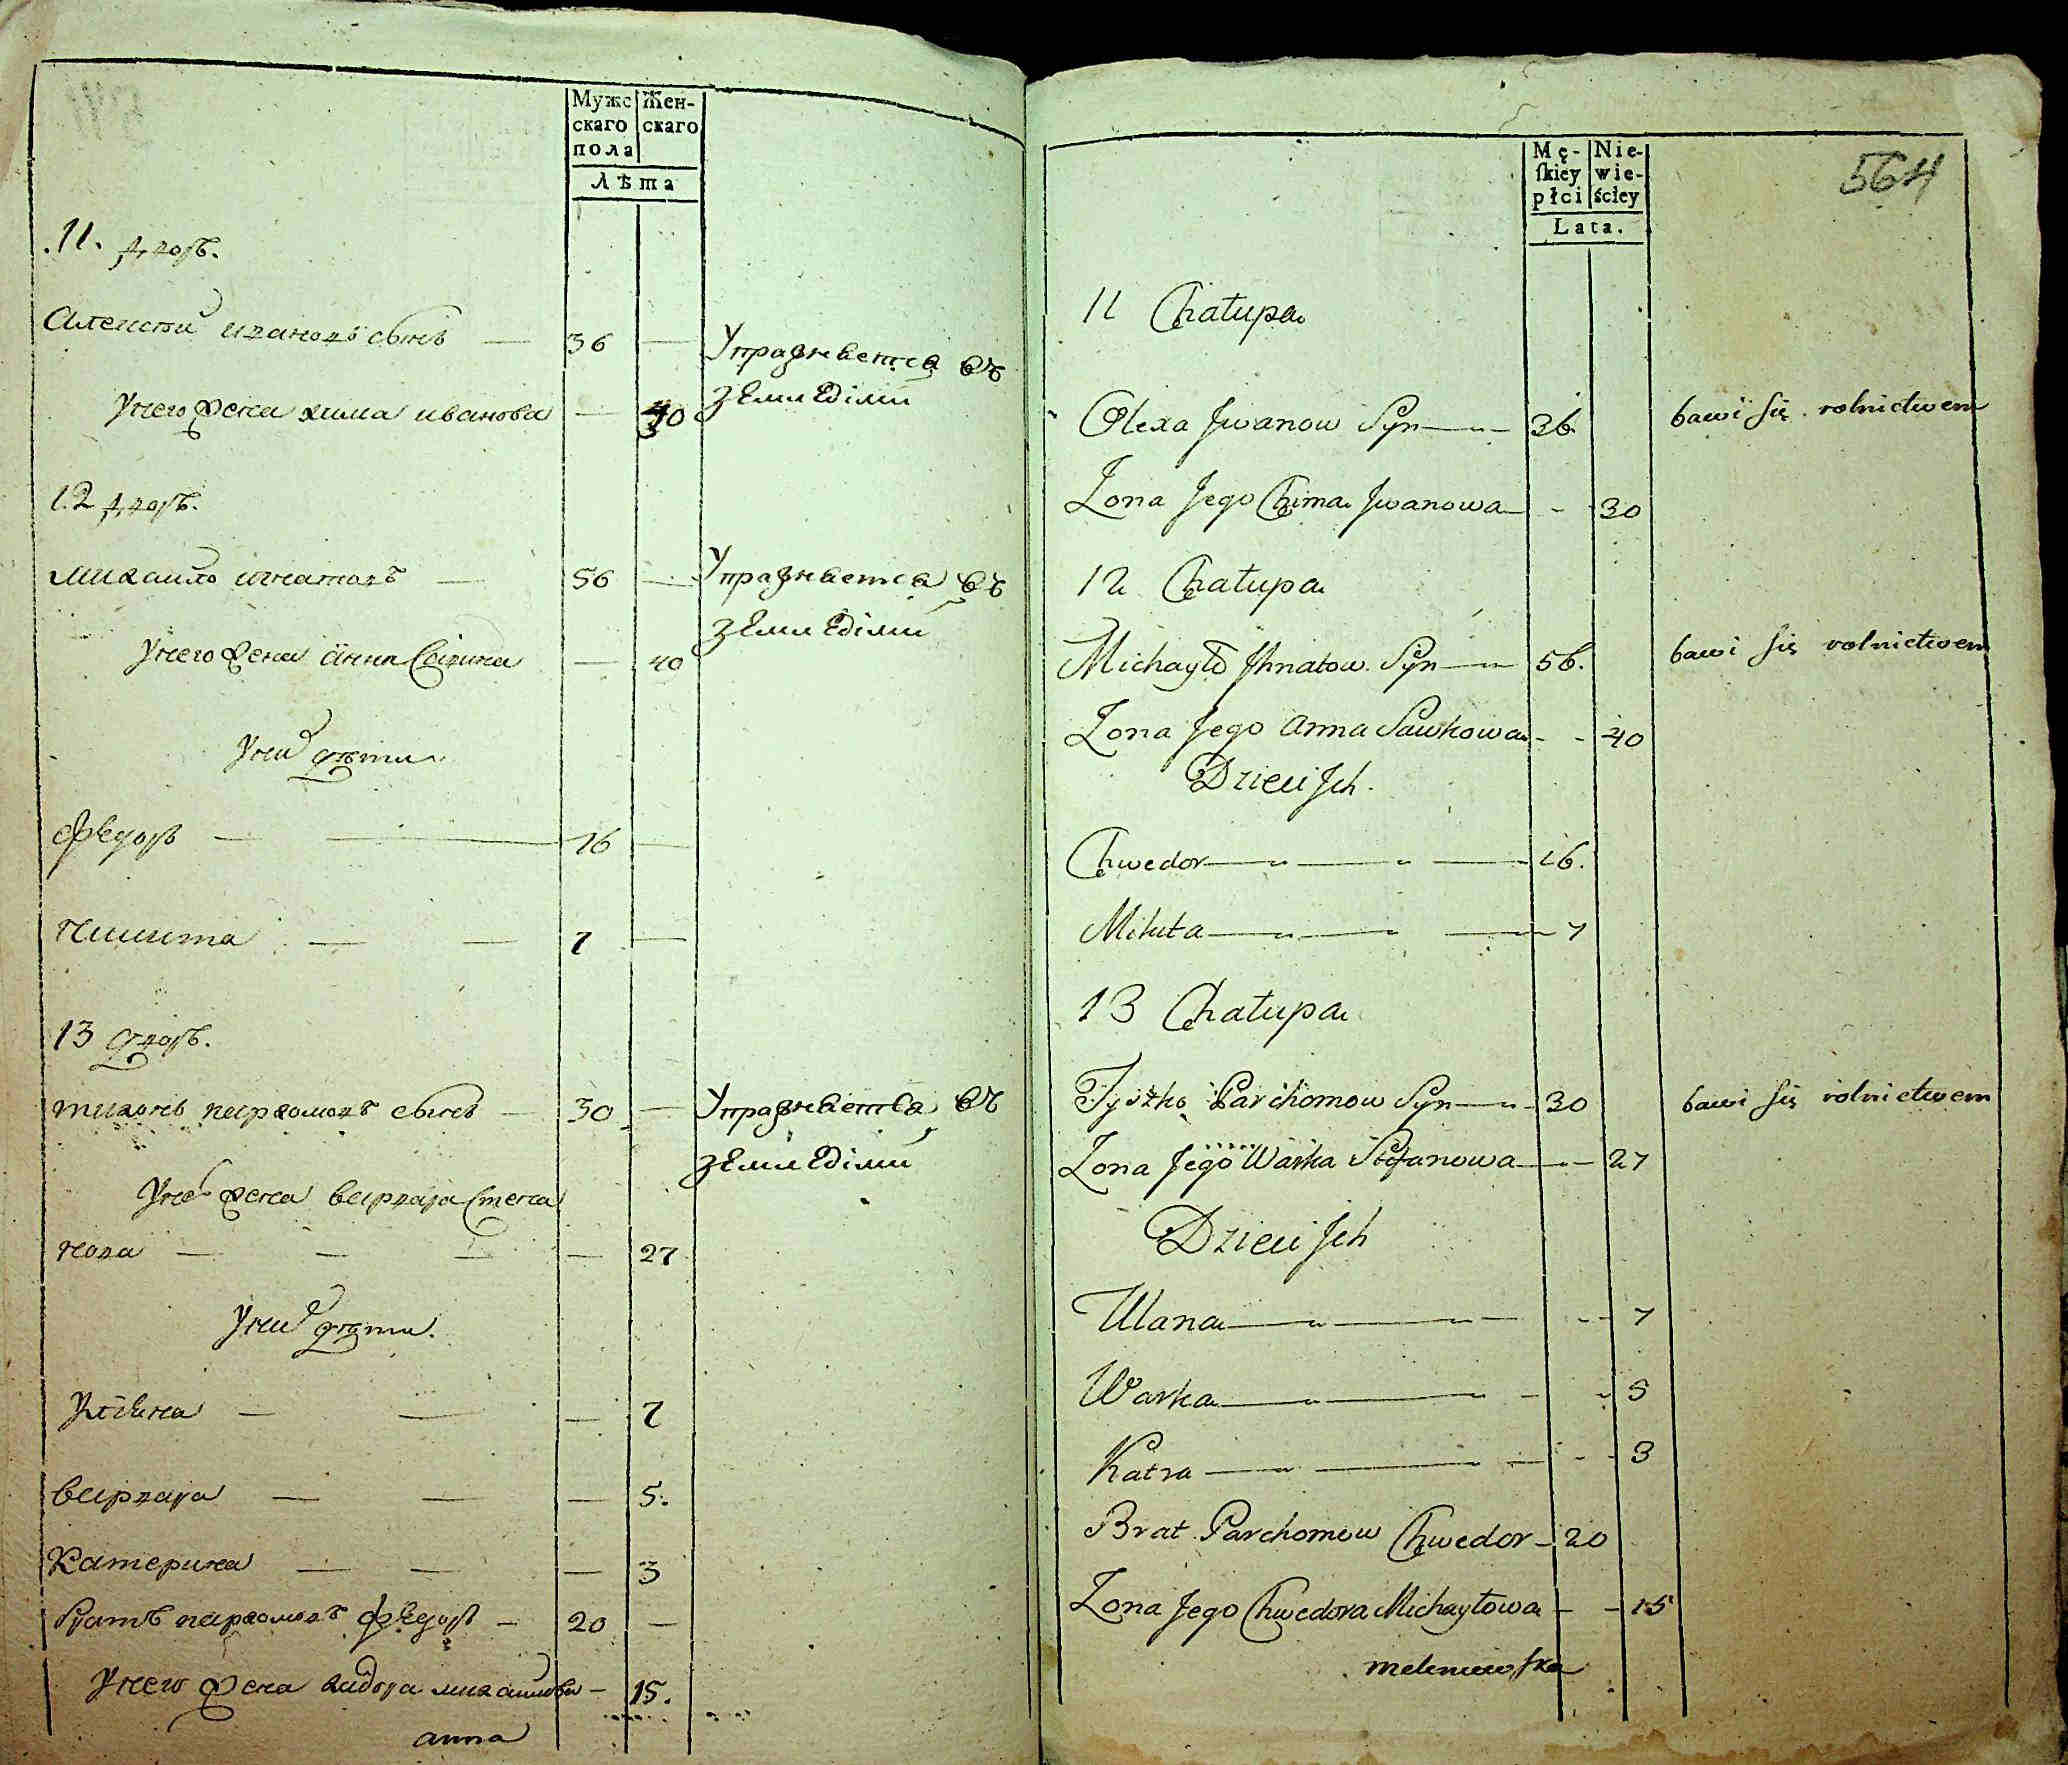 Мужс
скаго
пола
Жен-
скаго
Лѣта
11. дворъ.
Алексѣй ивановъ сынъ — 36 —
Упражняется въ
земледѣлии
У него жена хима иванова — 30
12 дворъ.
михайло игнатовъ — 56 —
Упражняется въ
земледѣлии
У него жена анна Савкина — 40
У них дѣти
федоръ — — 16 —
никита — — 7 —
13 дворъ.
тихонъ пархомовъ сынъ — 30 —
Упражняется въ
земледѣлии
У него жена варвара Степа
нова — — — — 27
У них дѣти.
Ульяна — — — 7
варвара — — — 5.
Катерина — — — 3
братъ пархомовъ федоръ — 20 —
У него жена хидора михайлова — 15.
анна
564
Mę-
skiey
płci
Nie-
wie-
ściey
Lata.
11 Chałupa
Olexa Jwanow Syn — 36.
bawi się rolnictwem
Zona Jego Chima Jwanowa — 30
12 Chałupa
Michayło Jhnatow Syn — 56.
bawi się rolnictwem
Zona Jego Anna Sawkowa - - 40
Dzieci Jch.
Chwedor — — — 16.
Mikita — — — 7
13 Chałupa
Tyszko Parchomow Syn — 30
bawi się rolnictwem
Zona Jego Warka Stefanowa — 27
Dzieci Jch
Ulana — — - - 7
Warka — — - - 5
Katra — — - - 3
Brat Parchomow Chwedor — 20
Zona Jego Chwedora Michayłowa — - 15